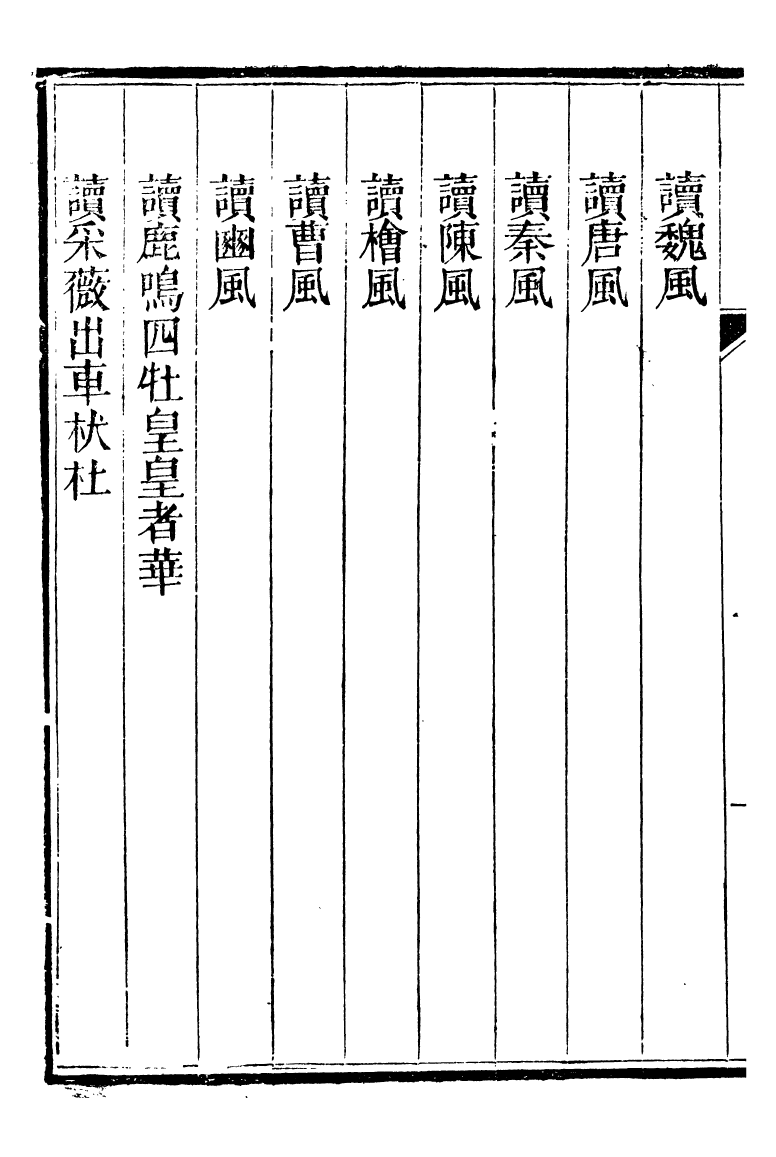 讀魏風
讀唐風
讀秦風
讀陳風
讀檜風
讀曹風
讀豳風
讀鹿鳴四牡皇皇者華
讀采薇出車杕杜